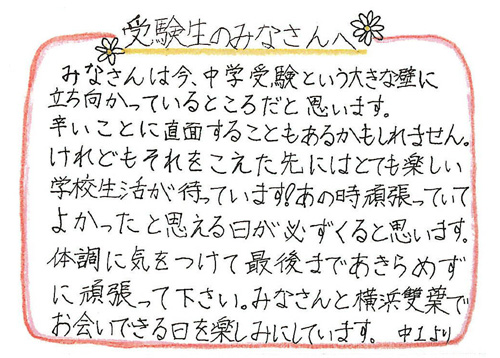 受験生のみなさんへ
みなさんは今、中学受験という大きな壁に
立ち向かっているところだと思います。
辛いことに直面することもあるかもしれません。
けれどもそれをこえた先にはとても楽しい
学校生活が待っています!あの時頑張っていて
よかったと思える日が必ずくると思います。
体調に気をつけて最後まであきらめず
に頑張って下さい。みなさんと横浜雙葉で
お会いできる日を楽しみにしています。 中1より